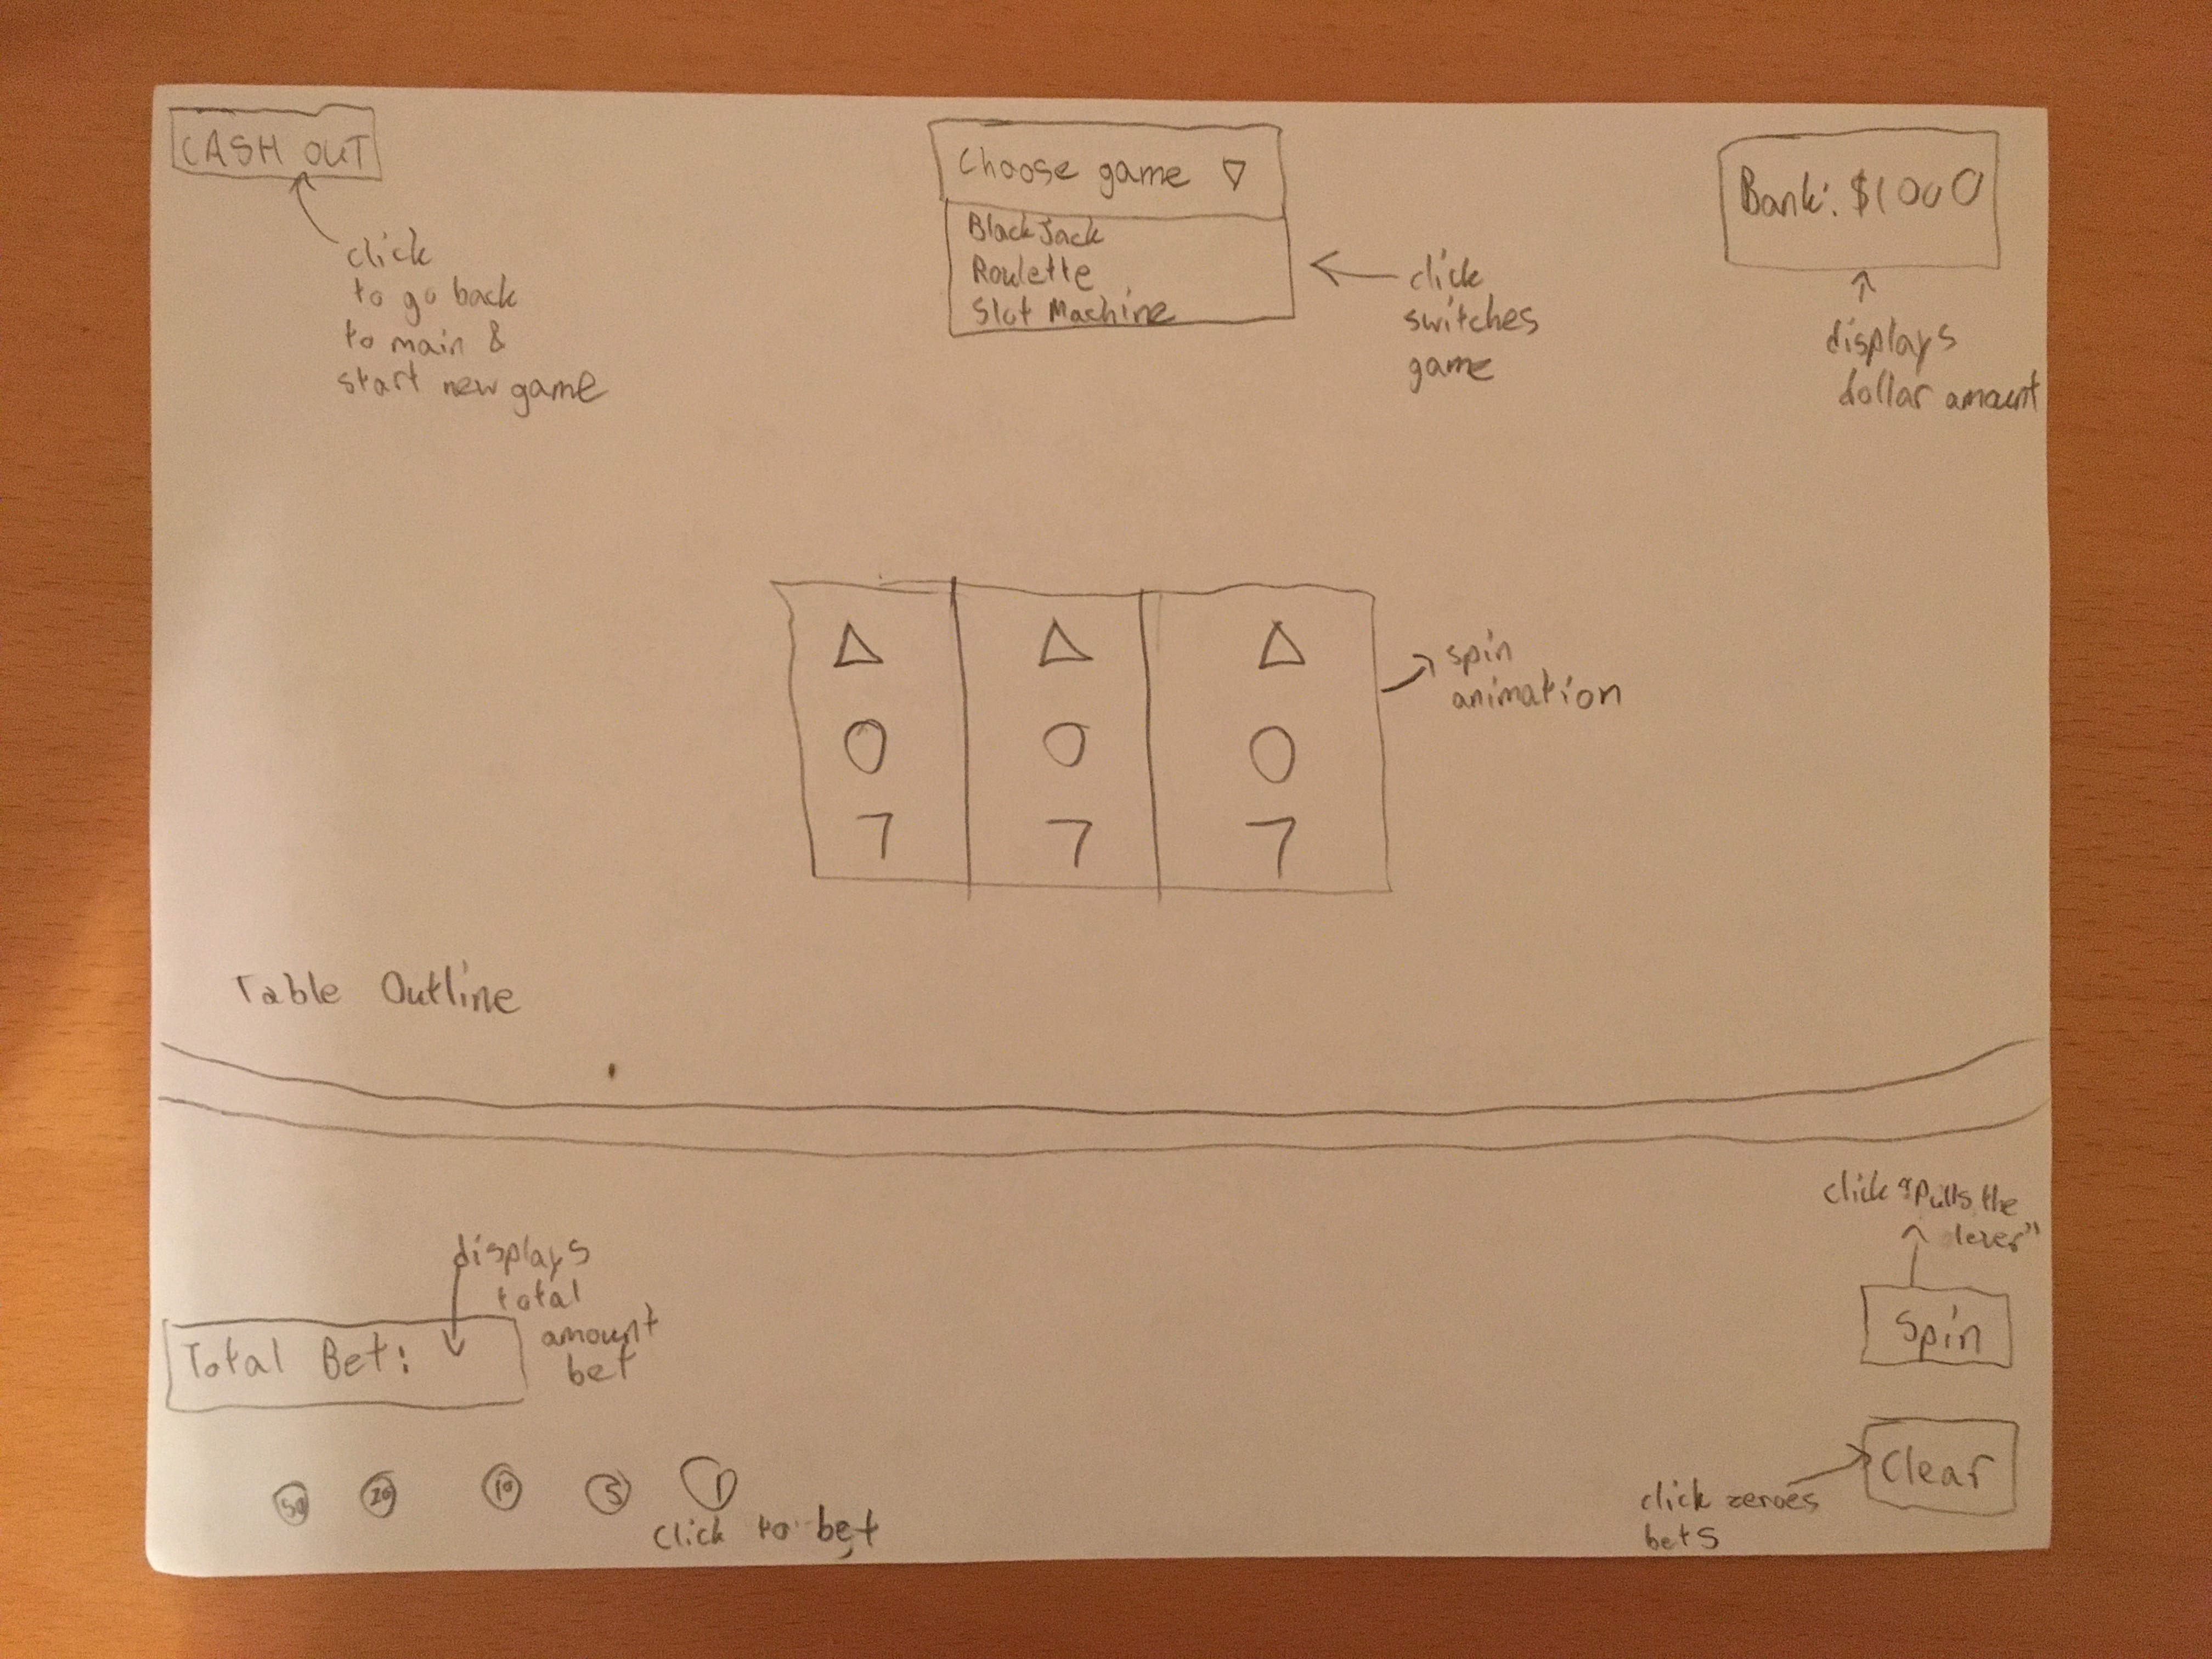 CASH OUT
click
to go back
to main &
start new game
Choose game ▽
BlackJack
Roulette
Slot Machine
click
switches
game
Bank: $1000
displays
dollar amount
△ △ △
O O O
7 7 7
spin
animation
Table Outline
Total Bet:
displays
total
amount
bet
10
5
1
click to bet
click "pulls the
lever"
Spin
Clear
click zeroes
bets